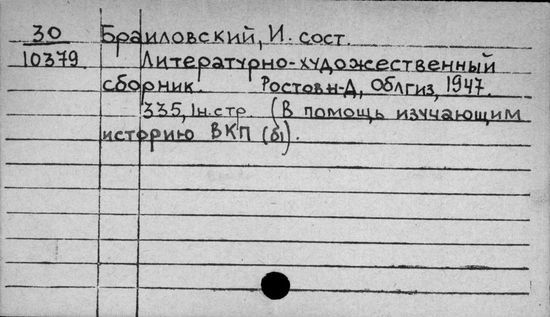 30 Браиловский, И. сост.
10379. Литературно-художественный
сборник. Ростов н-Д, Облгиз, 1947.
335, 1н.стр. (В помощь изучающим
историю ВКП(б)).